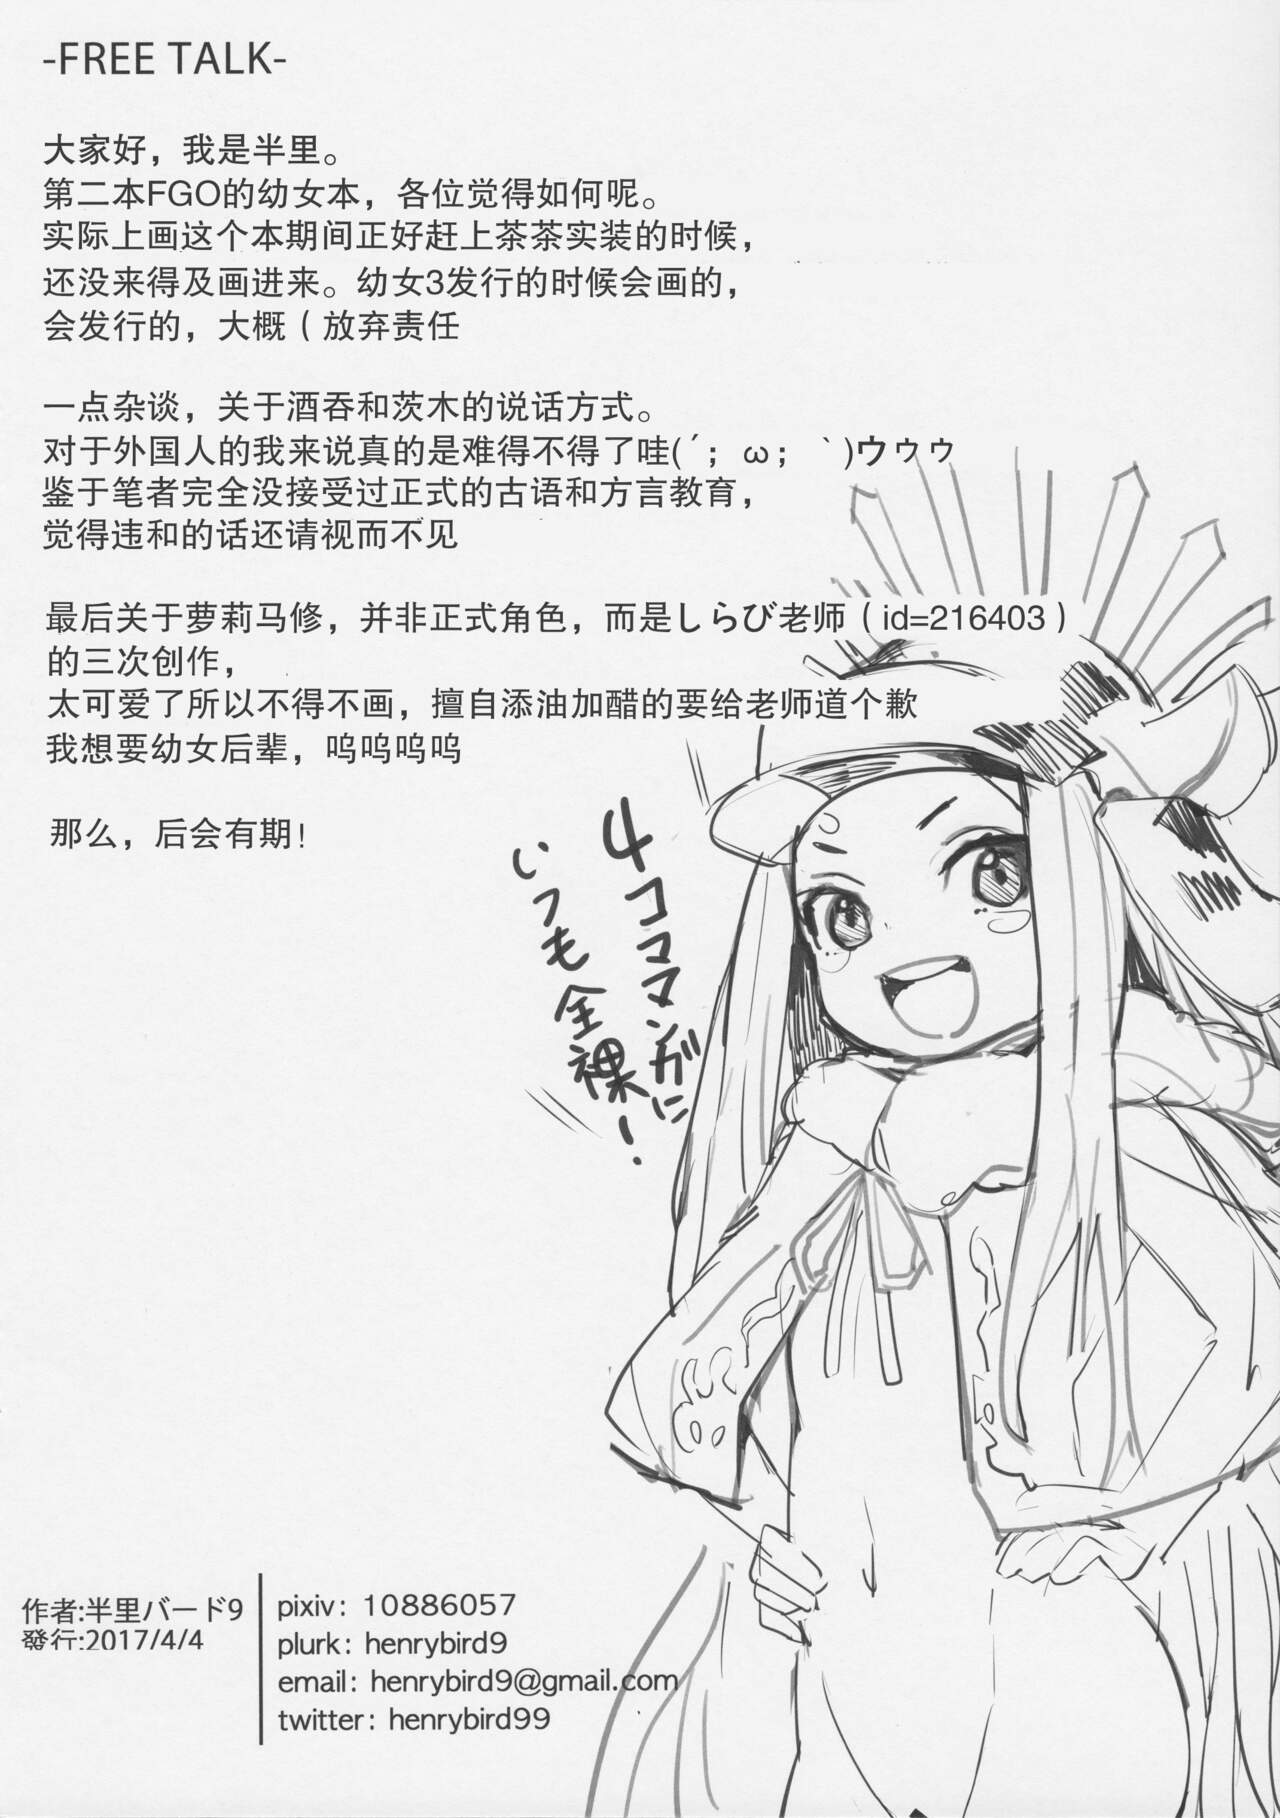 -FREE TALK-
大家好，我是半里。
第二本FGO的幼女本，各位觉得如何呢。
实际上画这个本期间正好赶上茶茶实装的时候，
还没来得及画进来。幼女3发行的时候会画的，
会发行的，大概（放弃责任
一点杂谈，关于酒吞和茨木的说话方式。
对于外国人的我来说真的是难得不得了哇(´；ω；｀)ウゥゥ
鉴于笔者完全没接受过正式的古语和方言教育，
觉得违和的话还请视而不见
最后关于萝莉马修，并非正式角色，而是しらび老师（id=216403）
的三次创作，
太可爱了所以不得不画，擅自添油加醋的要给老师道个歉
我想要幼女后辈，呜呜呜呜
那么，后会有期！
4コママンガに
いつも全裸！
作者:半里バード9
發行:2017/4/4
pixiv: 10886057
plurk: henrybird9
email: henrybird9@gmail.com
twitter: henrybird99